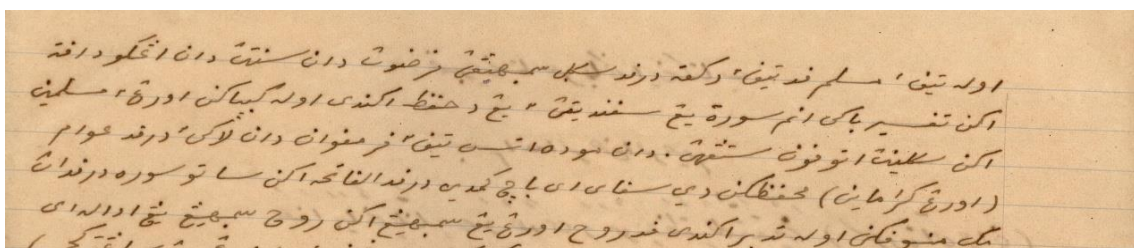 اوله تيڤ٢ مسلم ڤد تيڤ٢ ركعة درڤد سݢل سمبهيڠڽ فرضوڽ دان سنتڽ دان اڠكو داڤة
اكن تفسير باݢي انم سورة يڠ سڤنديقڽ٢ يڠ دحفظ اكندي اوله كباڽقكن اورڠ٢ مسلمين
اكن سكلينڽ اتوڤون ستڠهڽ. دان موده اتس تيڤ٢ فرمفوان دان لاكي٢ درڤد عوام
(اورڠ كراماين) محفظكن دي سڤاي اي باچ كمدين درڤد الفاتحه اكن ساتو سوره درڤداڽ
اوله تدبر اكندي ڤد روح اورڠ يڠ سمبهيڠ اكن روح سمبهيڠ يڠ اداله اي